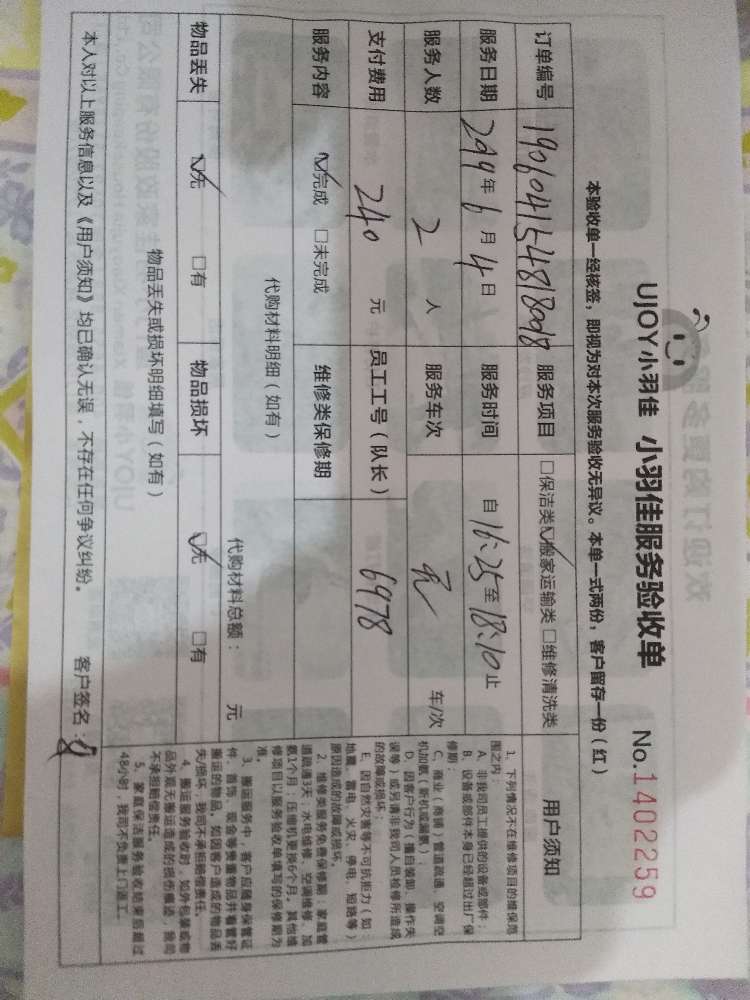 UJOY小羽佳 小羽佳服务验收单 No.1402259
本验收单一经核签，即视为对本次服务验收无异议。本单一式两份，客户留存一份（红）
订单编号 190604154818008 服务项目 □保洁类☑搬家运输类 □维修清洗类
服务日期 2019年6月4日 服务时间 自16:25至18:10止
服务人数 2人 服务车次 车/次
支付费用 240元 员工工号（队长） 6978
服务内容 ☑完成 □未完成 维修类保修期
代购材料明细（如有） 代购材料总额： 元
物品丢失 ☑无 □有 物品损坏 ☑无 □有
物品丢失或损坏明细填写（如有）
本人对以上服务信息以及《用户须知》均已确认无误，不存在任何争议纠纷。 客户签名：
用户须知
1、下列情况不在维修项目的维保范
围之内：
A、非我司员工提供的设备或部件；
B、设备或部件本身已经超过出厂保
修期；
C、商业（商铺）管道疏通、空调空
机加氨（新机或漏氨）；
D、因客户行为（擅自装卸、操作失
误等）或另请非我司人员检修所造成
的故障或损坏；
E、因自然灾害等不可抗拒力（如：
地震、雷电、火灾、停电、短路等）
原因造成的故障或损坏。
2、维修类服务免费保修期：家庭管
道疏通3天；水电维修、空调维修、加
氨1个月；压缩机更换6个月。其他维
修项目以服务验收单填写的保修期为
准。
3、搬运服务中，客户应随身保管证
件、首饰、现金等贵重物品并看管好
搬运的物品。如因客户造成的物品丢
失/损坏，我司不承担赔偿责任。
4、搬运服务验收时，如外包装或物
品外观无搬运造成的损伤痕迹，我司
不承担赔偿责任。
5、家庭保洁服务验收结束后超过
48小时，我司不负责上门返工。